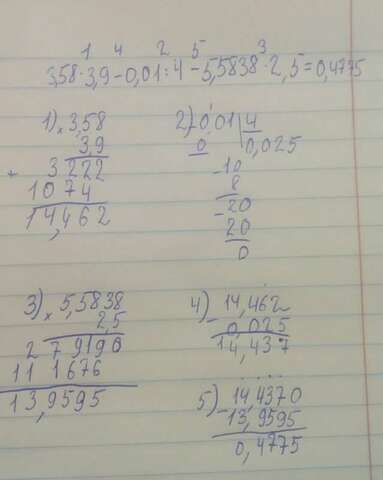 1 4 2 5 3
3,58·3,9-0,01:4-5,5838·2,5=0,4775
1) × 3,58
3,9
+ 3222
1074
14,462
2) -0,01 | 4
0 0,025
-10
8
-20
20
0
3) × 5,5838
2,5
2 79190
11 1676
13,9595
4) - 14,462
0,025
14,437
5) - 14,4370
13,9595
0,4775